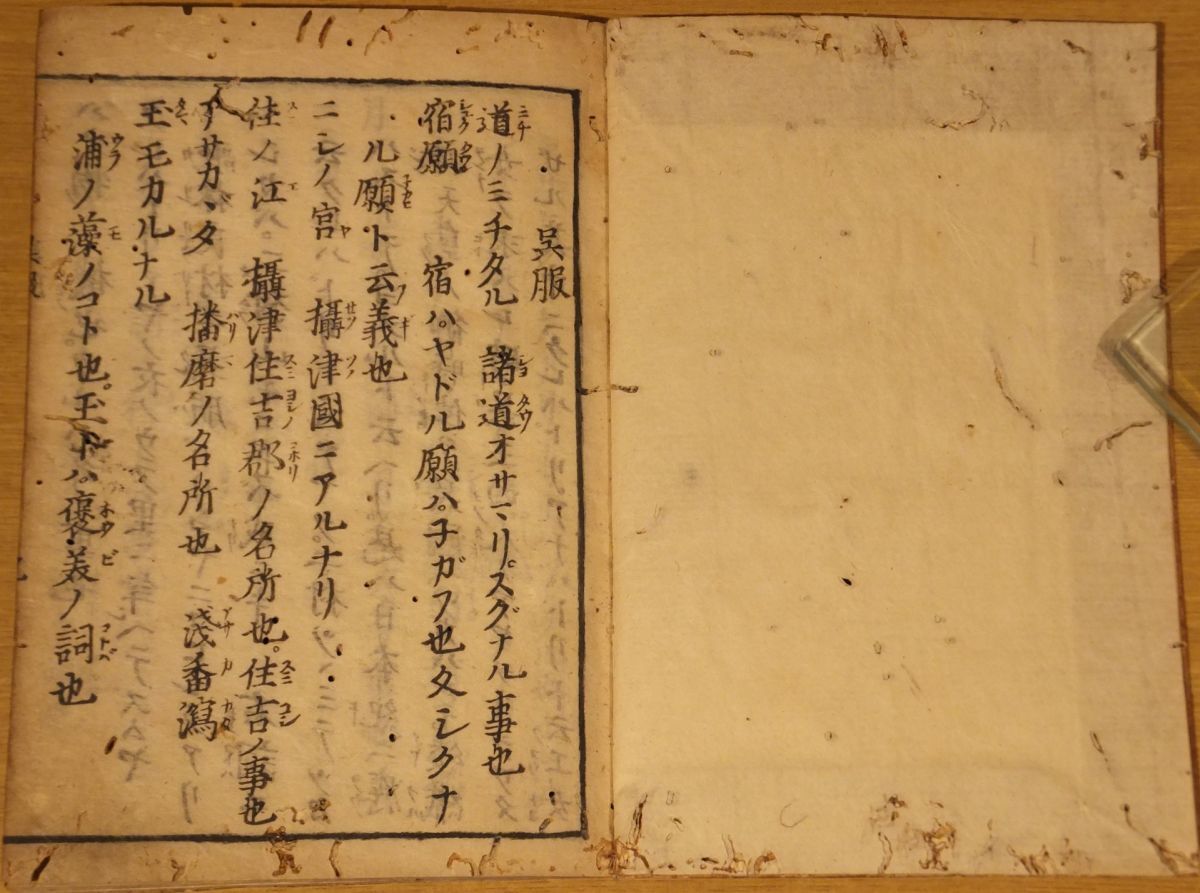 呉服
道ノミチタル 諸道オサマリ。スグナル事也
宿願 宿ハ。ヤドル願ハ。子ガフ也久シクナ
ル願ト云義也
ニシノ宮 攝津國ニアルナリ
住ノ江 攝津住吉郡ノ名所也。住吉ノ事也
アサカヾタ 播磨ノ名所也 淺香瀉
玉モカルナル
浦ノ藻ノコト也。玉トハ。褒美ノ詞也